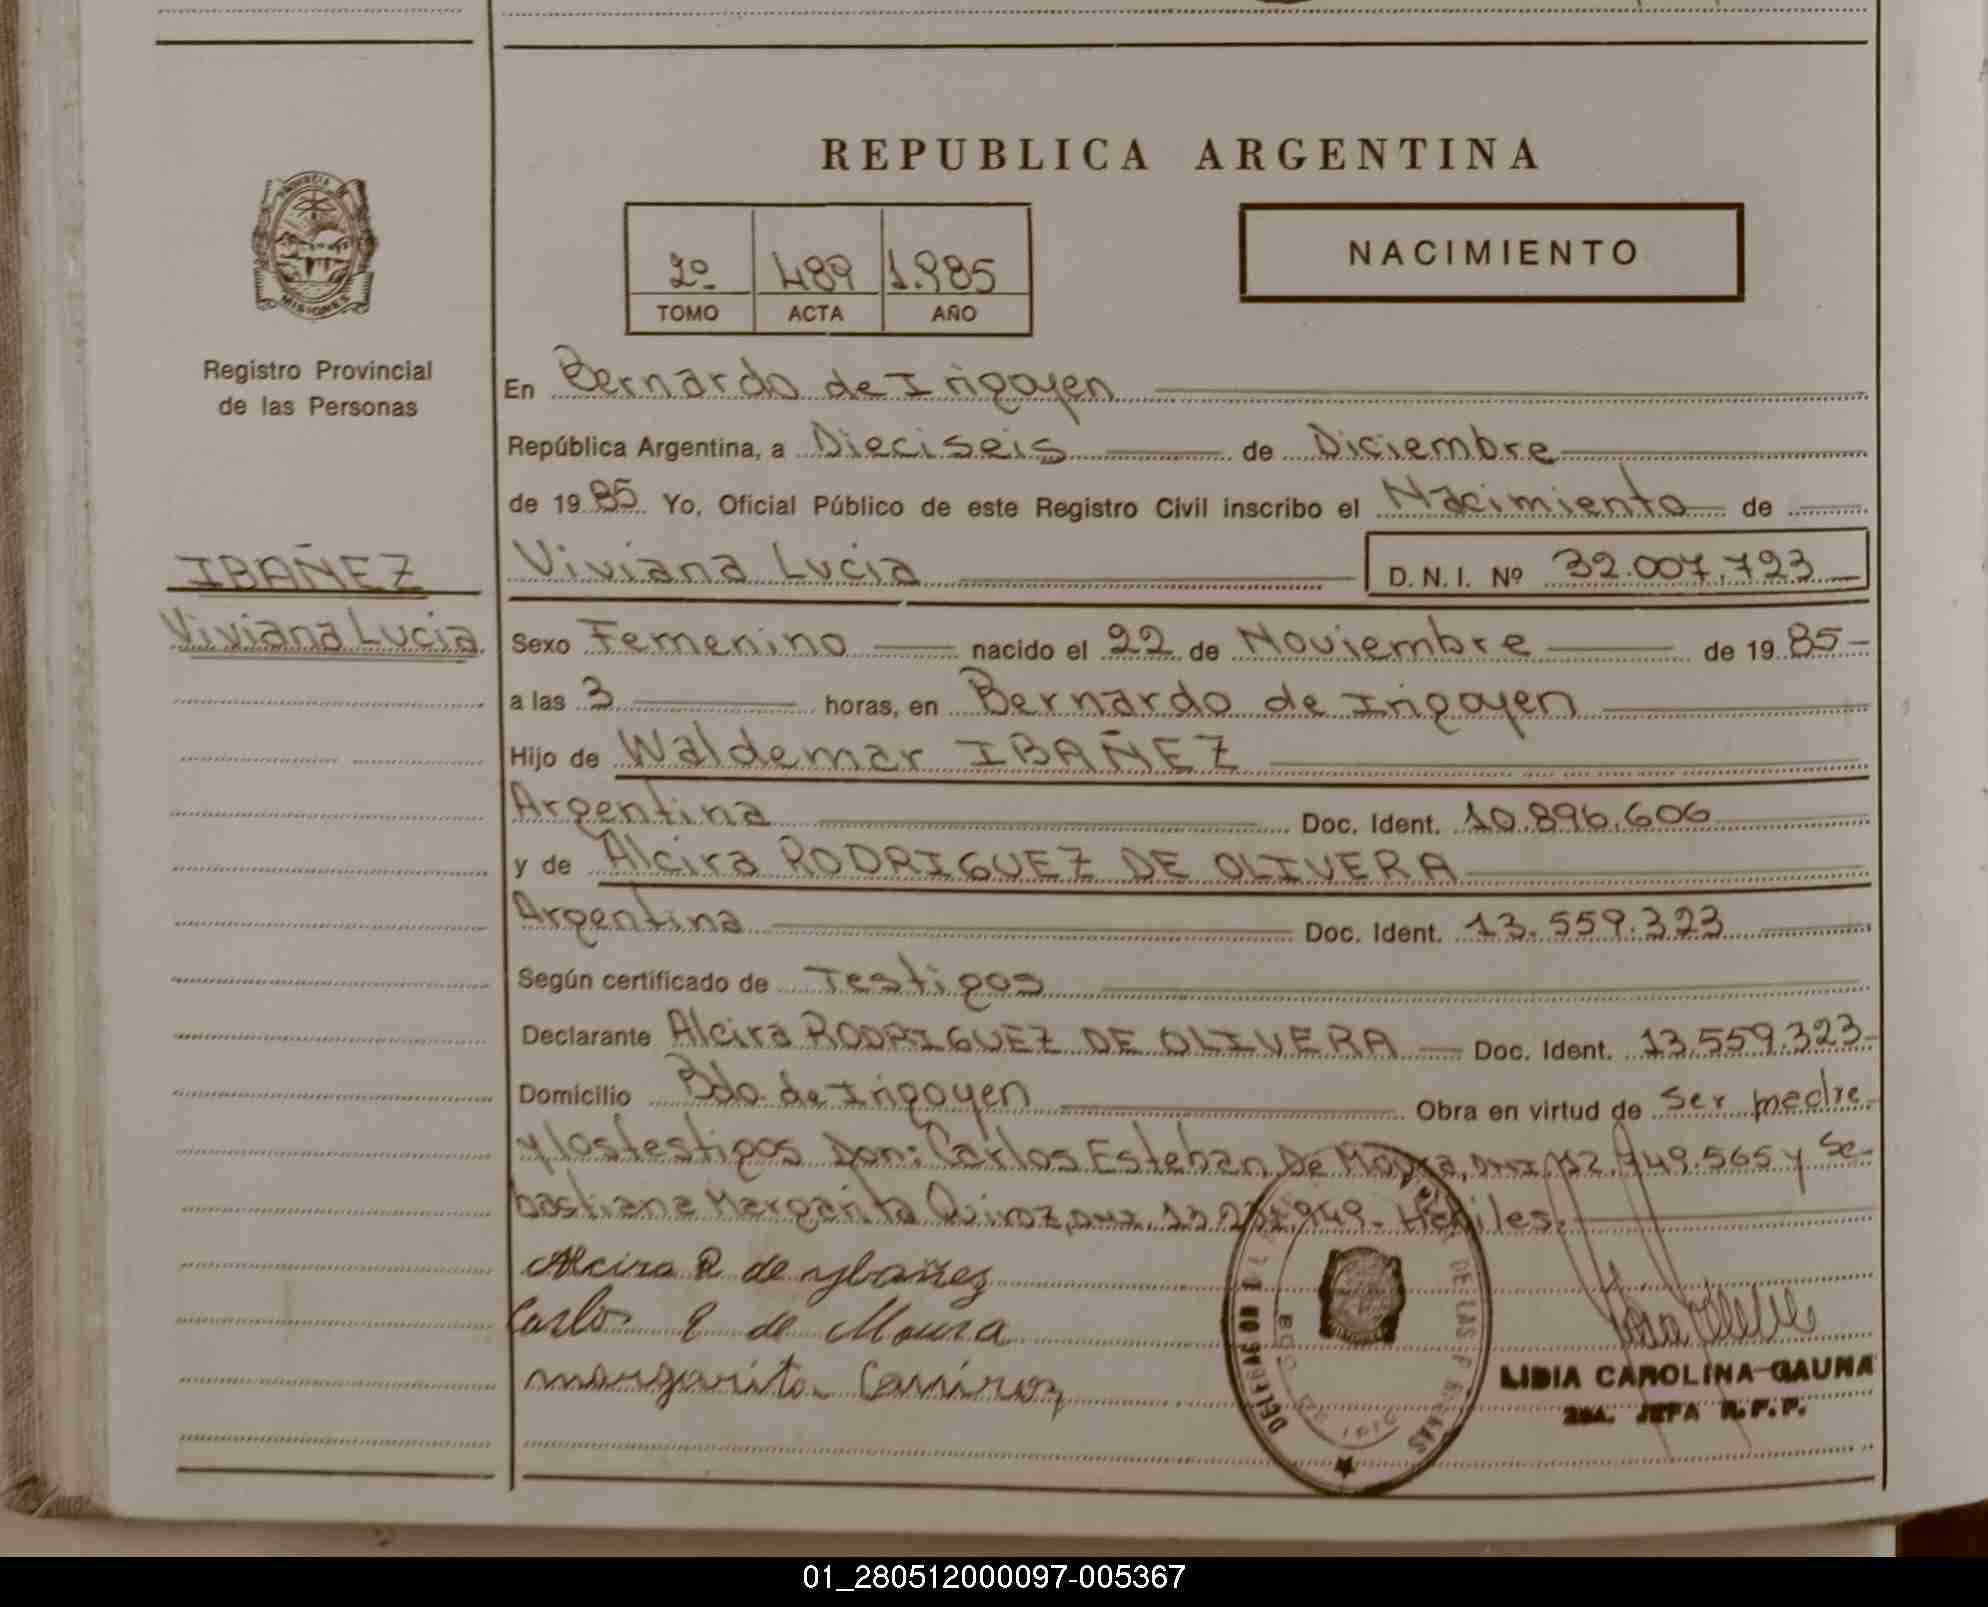 REPUBLICA ARGENTINA
2º 489 1.985
TOMO ACTA AÑO
NACIMIENTO
PROVINCIA DE
MISIONES
Registro Provincial
de las Personas
IBAÑEZ
Viviana Lucia
En Bernardo de Irigoyen
República Argentina, a Dieciseis de Diciembre
de 1985 Yo, Oficial Público de este Registro Civil inscribo el Nacimiento de
Viviana Lucia D. N. I. Nº 32.007.723
Sexo Femenino nacido el 22 de Noviembre de 1985
a las 3 horas, en Bernardo de Irigoyen
Hijo de Waldemar IBAÑEZ
Argentina Doc. Ident. 10.896.606
y de Alcira RODRIGUEZ DE OLIVERA
Argentina Doc. Ident. 13.559.323
Según certificado de Testigos
Declarante Alcira RODRIGUEZ DE OLIVERA Doc. Ident. 13.559.323
Domicilio Bdo. de Irigoyen Obra en virtud de ser madre
y los testigos Don: Carlos Esteban De Moura, DNI 12.949.565 y Se-
bastiana Margarita Quiroz, DNI. 949. Habiles.
Alcira R de ybañez
Carlos E de Moura
margarita
LIDIA CAROLINA GAUNA
2da. JEFA R.P.P.
01_280512000097-005367